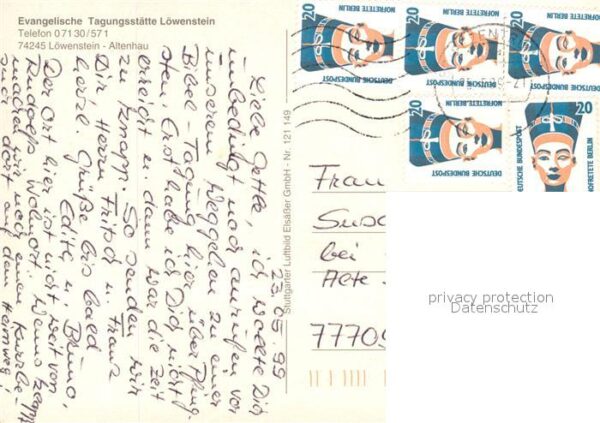 Evangelische Tagungsstätte Löwenstein
Telefon 0 71 30 / 5 71
74245 Löwenstein - Altenhau
23.05.99
Liebe Oette, ich wollte Dich
unbedingt noch anrufen vor
unserem Weggehen zu einer
Bibel-Tagung hier über Pfing-
sten. Erst habe ich Dich nicht
erreicht u. dann war die Zeit
zu knapp. So senden wir
Dir Herrn Fritsch u. Frau
herzl. Grüße bis bald
Edith u. Bruno,
Der Ort hier ist nicht weit von
Rüdigers Wohnort! Wenn es geht
machen wir noch einen Kurzbe-
such dort auf dem Heimweg!
Stuttgarter Luftbild Elsäßer GmbH - Nr. 121 149
Frau
bei
Alte
77709
20
NOFRETETE BERLIN
DEUTSCHE BUNDESPOST
20
NOFRETETE BERLIN
DEUTSCHE BUNDESPOST
20
NOFRETETE BERLIN
DEUTSCHE BUNDESPOST
20
NOFRETETE BERLIN
DEUTSCHE BUNDESPOST
20
NOFRETETE BERLIN
DEUTSCHE BUNDESPOST
privacy protection
Datenschutz